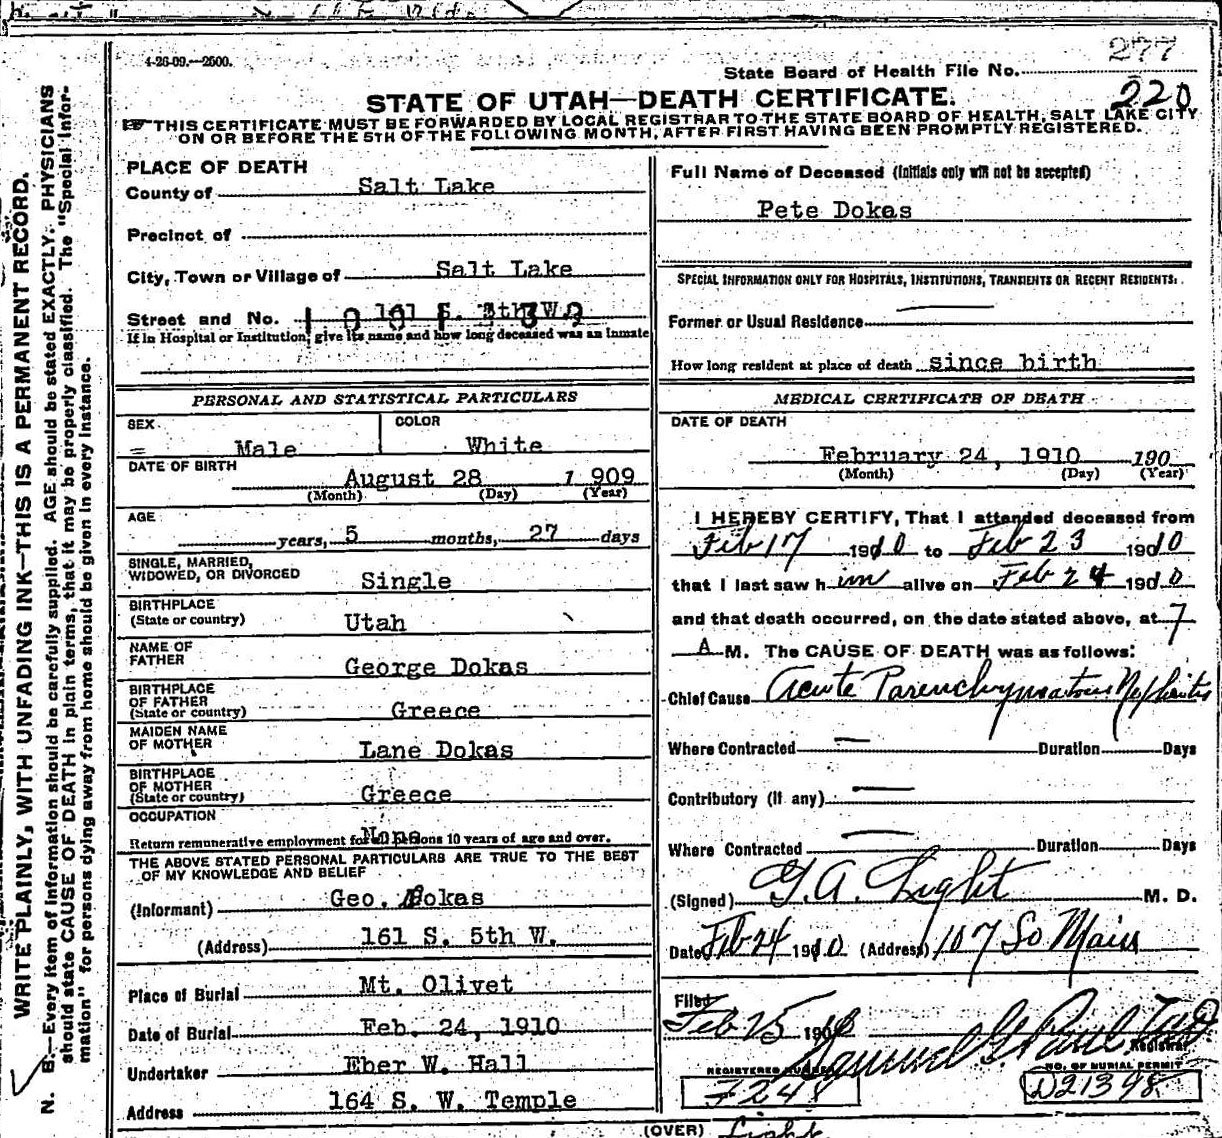 4-26-09.—2500.
277
State Board of Health File No.
220
STATE OF UTAH—DEATH CERTIFICATE.
THIS CERTIFICATE MUST BE FORWARDED BY LOCAL REGISTRAR TO THE STATE BOARD OF HEALTH, SALT LAKE CITY
ON OR BEFORE THE 5TH OF THE FOLLOWING MONTH, AFTER FIRST HAVING BEEN PROMPTLY REGISTERED.
WRITE PLAINLY, WITH UNFADING INK—THIS IS A PERMANENT RECORD.
N. B.—Every item of information should be carefully supplied. AGE should be stated EXACTLY. PHYSICIANS
should state CAUSE OF DEATH in plain terms, that it may be properly classified. The "Special Infor-
mation" for persons dying away from home should be given in every instance.
PLACE OF DEATH
County of Salt Lake
Precinct of
City, Town or Village of Salt Lake
Street and No. 161 S. 5th W.
If in Hospital or Institution, give its name and how long deceased was an inmate
PERSONAL AND STATISTICAL PARTICULARS
SEX
COLOR
Male
White
DATE OF BIRTH
August 28 1 909
(Month) (Day) (Year)
AGE
years, 5 months, 27 days
SINGLE, MARRIED,
WIDOWED, OR DIVORCED
Single
BIRTHPLACE
(State or country)
Utah
NAME OF
FATHER
George Dokas
BIRTHPLACE
OF FATHER
(State or country)
Greece
MAIDEN NAME
OF MOTHER
Lane Dokas
BIRTHPLACE
OF MOTHER
(State or country)
Greece
OCCUPATION
None
Return remunerative employment for all persons 10 years of age and over.
THE ABOVE STATED PERSONAL PARTICULARS ARE TRUE TO THE BEST
OF MY KNOWLEDGE AND BELIEF
(Informant) Geo. Dokas
(Address) 161 S. 5th W.
Place of Burial Mt. Olivet
Date of Burial Feb. 24, 1910
Undertaker Eber W. Hall
Address 164 S. W. Temple
Full Name of Deceased (Initials only will not be accepted)
Pete Dokas
SPECIAL INFORMATION ONLY FOR HOSPITALS, INSTITUTIONS, TRANSIENTS OR RECENT RESIDENTS:
Former or Usual Residence —
How long resident at place of death since birth
MEDICAL CERTIFICATE OF DEATH
DATE OF DEATH
February 24, 1910 190
(Month) (Day) (Year)
I HEREBY CERTIFY, That I attended deceased from
Feb 17 1910 to Feb 23 1910
that I last saw him alive on Feb 24 1910
and that death occurred, on the date stated above, at 7
A M. The CAUSE OF DEATH was as follows:
Chief Cause Acute Parenchymatous Nephritis
Where Contracted — Duration Days
Contributory (if any) —
Where Contracted — Duration Days
(Signed) G. A. Light M. D.
Date Feb 24 1910 (Address) 107 So Main
Filed
Feb 25 1910
Samuel G. Paul
Registrar
REGISTERED NUMBER
NO. OF BURIAL PERMIT
F248
D21398
(OVER) Light